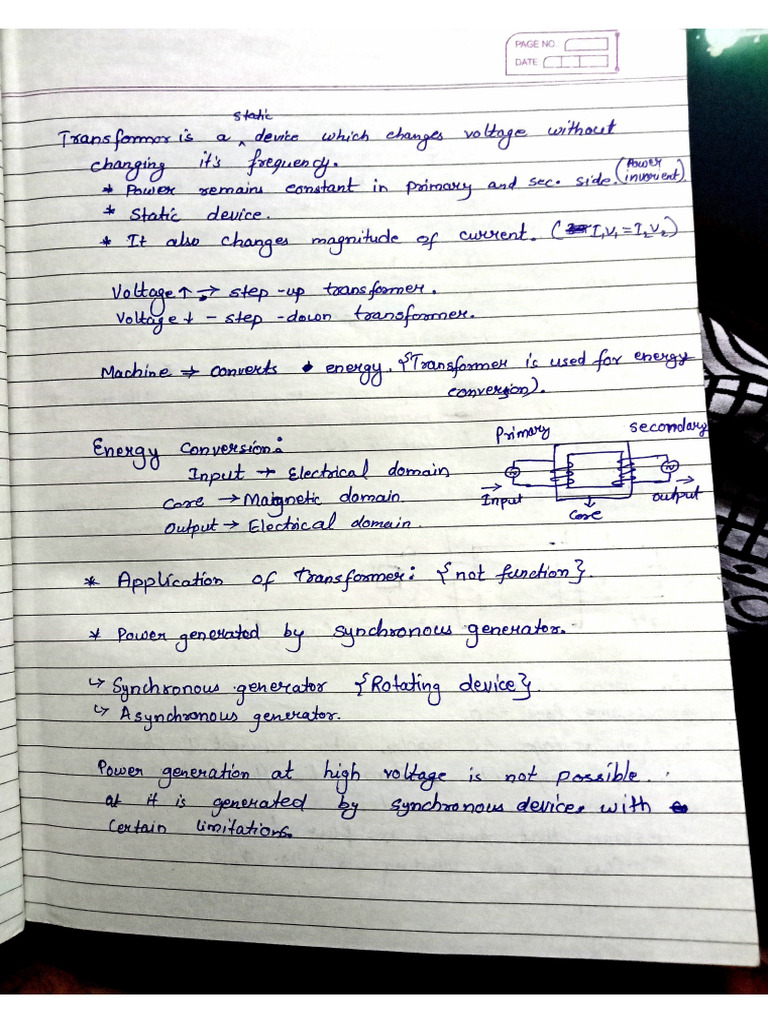 PAGE NO.
DATE
static
Transformer is a ^ device which changes voltage without
changing it's frequency.
* Power remains constant in primary and sec. side. (Power invarient).
* Static device.
* It also changes magnitude of current. ( I₁V₁ = I₂V₂)
Voltage ↑ → step-up transformer.
Voltage ↓ - step-down transformer.
Machine → converts energy. {Transformer is used for energy
conversion).
Primary secondary
Energy Conversion:
Input → Electrical domain
Core → Magnetic domain.
Output → Electrical domain.
Input output
Core
* Application of Transformer: {not function}.
* Power generated by synchronous generator.
↳ Synchronous generator {Rotating device}.
↳ Asynchronous generator.
Power generation at high voltage is not possible.
at it is generated by synchronous device, with
certain limitations.